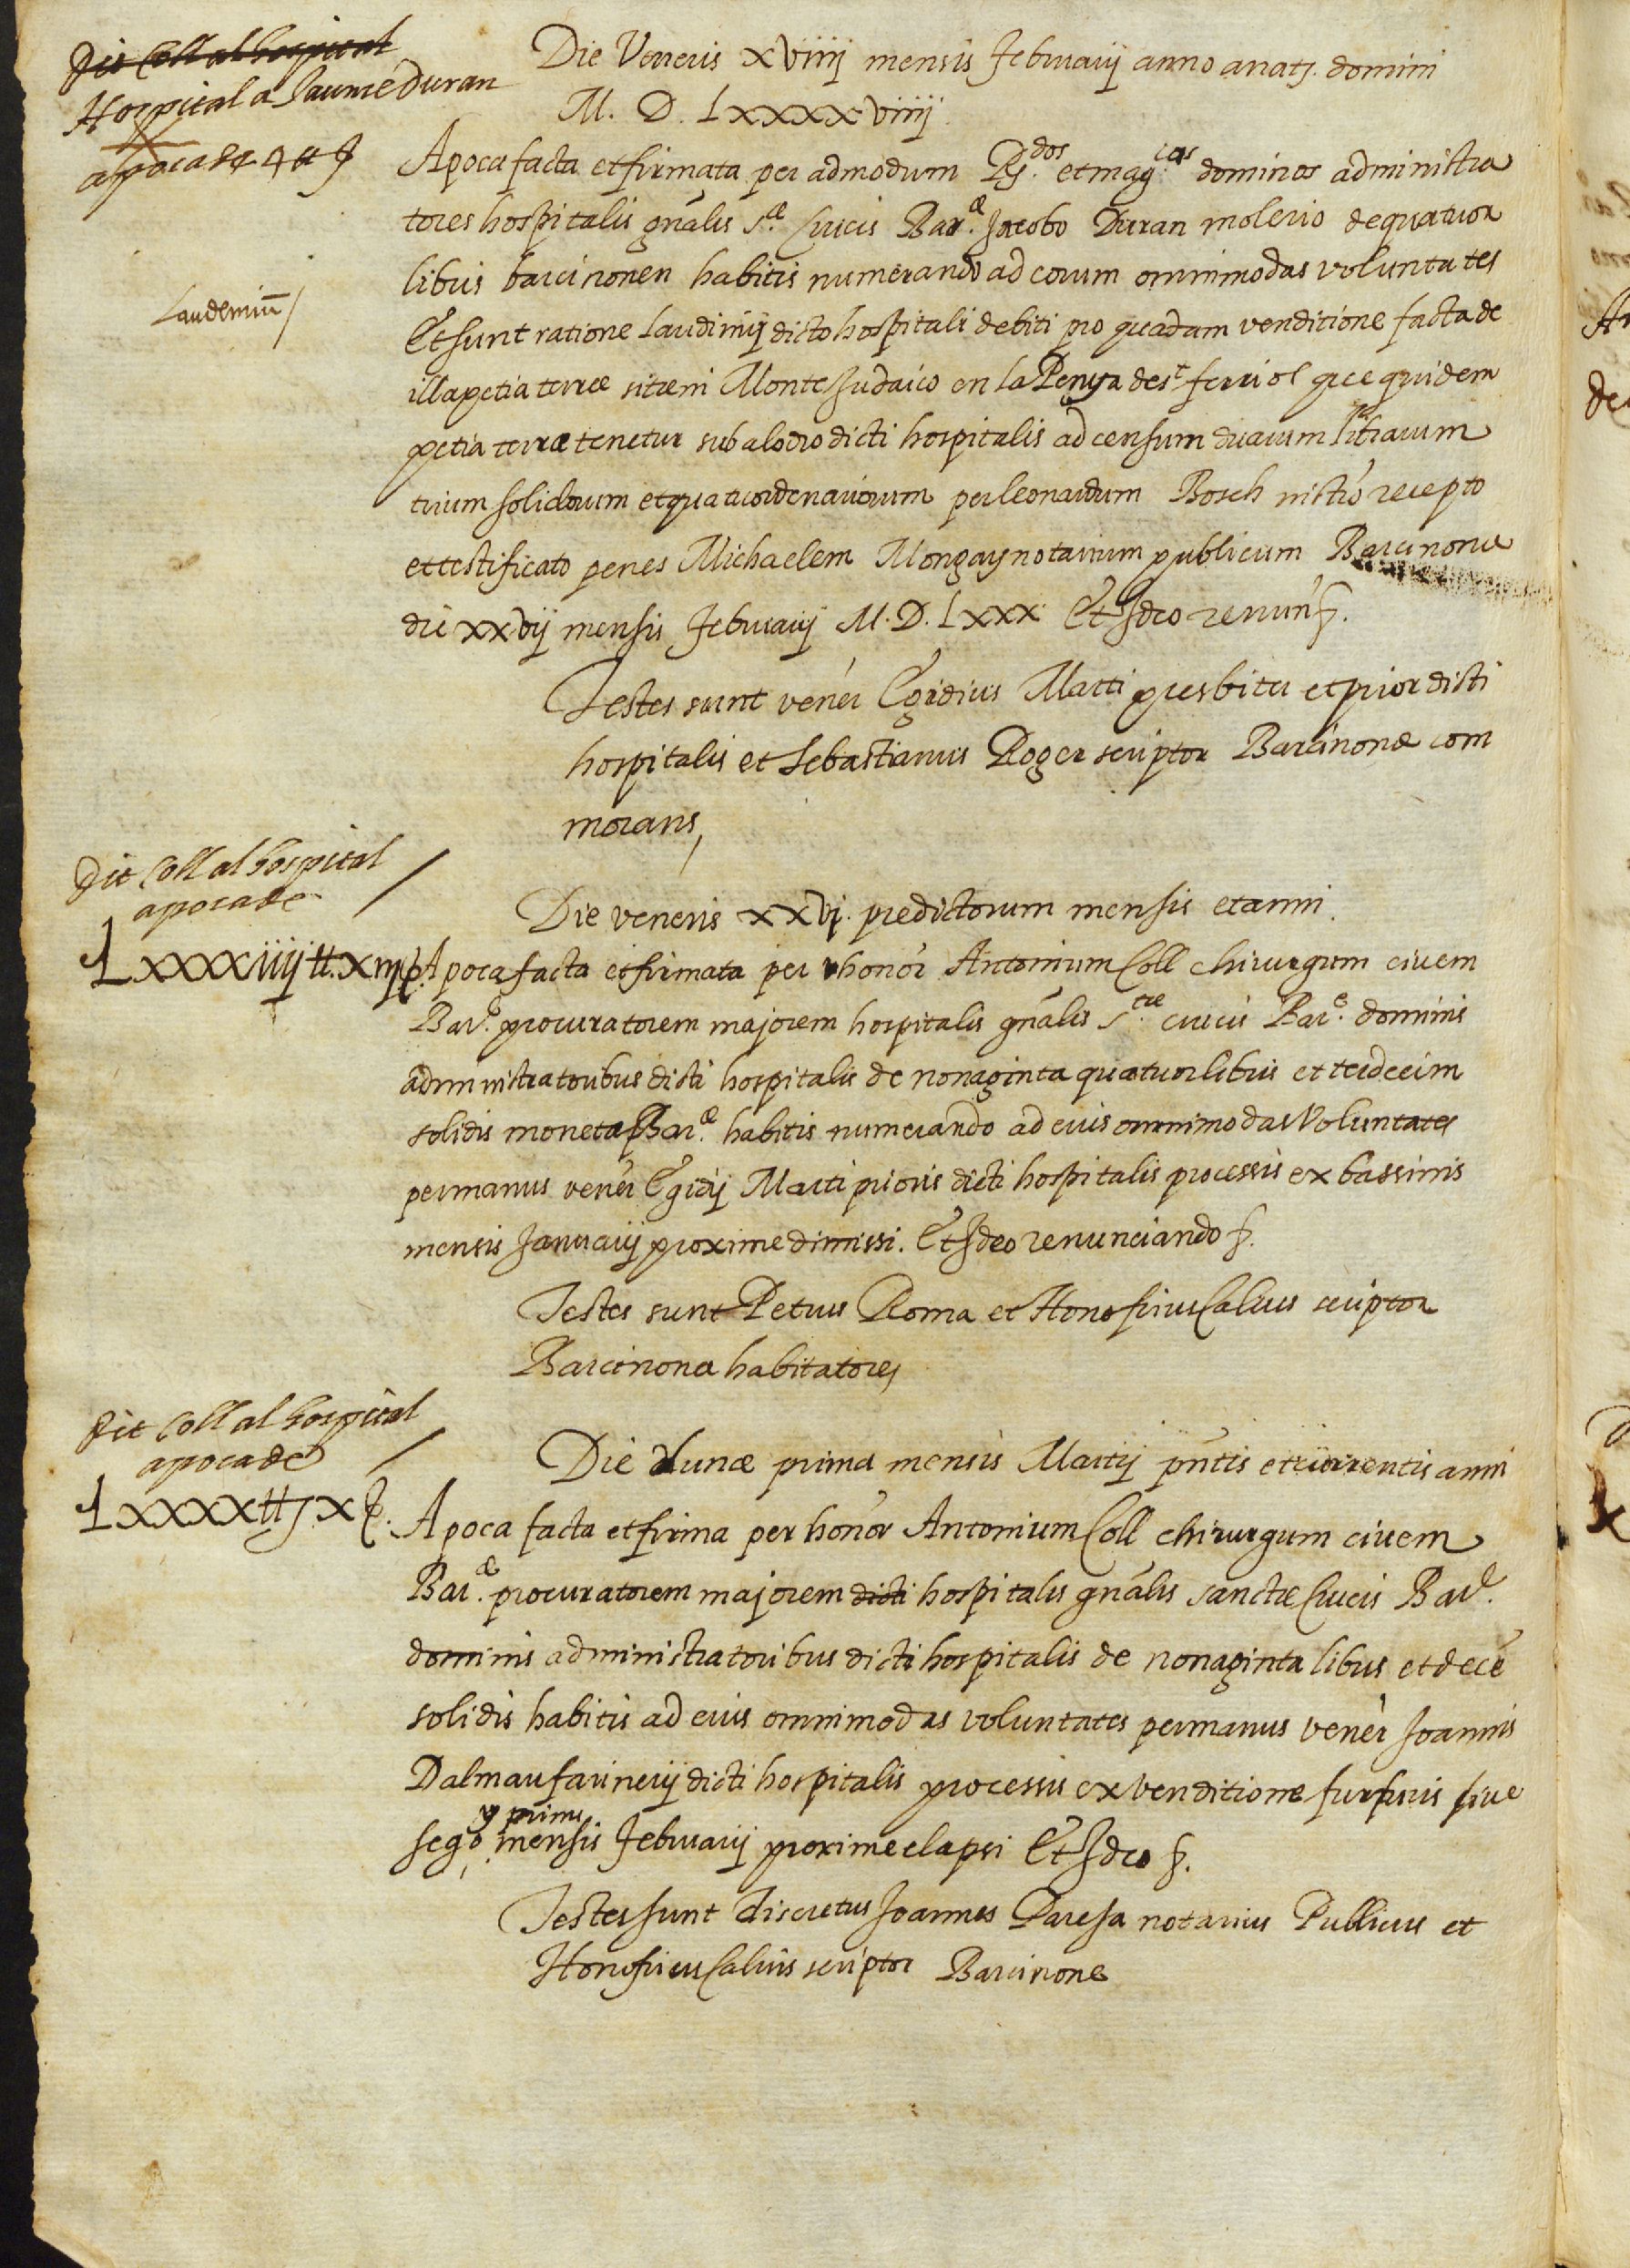 Dit Coll al hospital
Hospital a Jaume Duran
apoca de 4 ll s
Die Veneris xviiij mensis februarij anno a natt. domini
M. D. Lxxxxviiij
Apoca facta et firmata per admodum Rj.dos et mag.cos dominos administra
tores hospitalis gnalis s.æ Crucis Bar.æ Jacobo Duran molerio de quatuor
libris barcinonen habitis numerando ad eorum omnimodas voluntates
Laudemiū /
Et sunt ratione laudimij dicto hospitali debiti pro quadam venditione facta de
illa petia terræ sitæ in Monte Judaico en la Penya de st ferriol que quidem
petia terræ tenetur sub alodio dicti hospitalis ad censum duarum librarum
trium solidorum et quatuor denariorum per leonardum Bosch
recepto
et testificato penes Michaelem Mongay notarium publicum Barcinone
die xxvij mensis februarij M. D. Lxxx Et Ideo renun
Testes sunt vener Egidius Marti presbiter et prior dicti
hospitalis et Sebastianus Roger scriptor Barcinonæ com
morans,
Dit Coll al hospital
apoca de
Lxxxxiiij ll. xiij s.
Die veneris xxvj. predictorum mensis et anni.
Apoca facta et firmata per honor Antonium Coll chirurgum civem
Bar.e procuratorem majorem hospitalis gnalis s.tæ crucis Bar.e dominis
administratoribus dicti hospitalis de nonaginta quatuor libris et terdecim
solidis moneta Bar.æ habitis numerando ad eius omnimodas Voluntates
per manus vener Egidij Marti prioris dicti hospitalis processis ex bassinis
mensis Januarij proxime dimissi. Et Ideo renunciando
Testes sunt Petrus Roma et Honofrius Calvis scriptor
Barcinona habitatores
Dit Coll al hospital
apoca de
Lxxxx ll x s.
Die Lunæ prima mensis Martij pntis et currentis anni
Apoca facta et firma per honor Antonium Coll chirurgum civem
Bar.æ procuratorem majorem dicti hospitalis gnalis sanctæ Crucis Bar.e
dominis administratoribus dicti hospitalis de nonaginta libris et decē
solidis habitis ad eius omnimodas voluntates per manus vener Joannis
Dalmau farinerij dicti hospitalis processis ex venditione furfuris sive
y primu
sego, mensis februarij proxime elapsi Et Ideo
Testes sunt discretus Joannes Paresa notarius Publicus et
Honofrius Calvis scriptor Barcinone